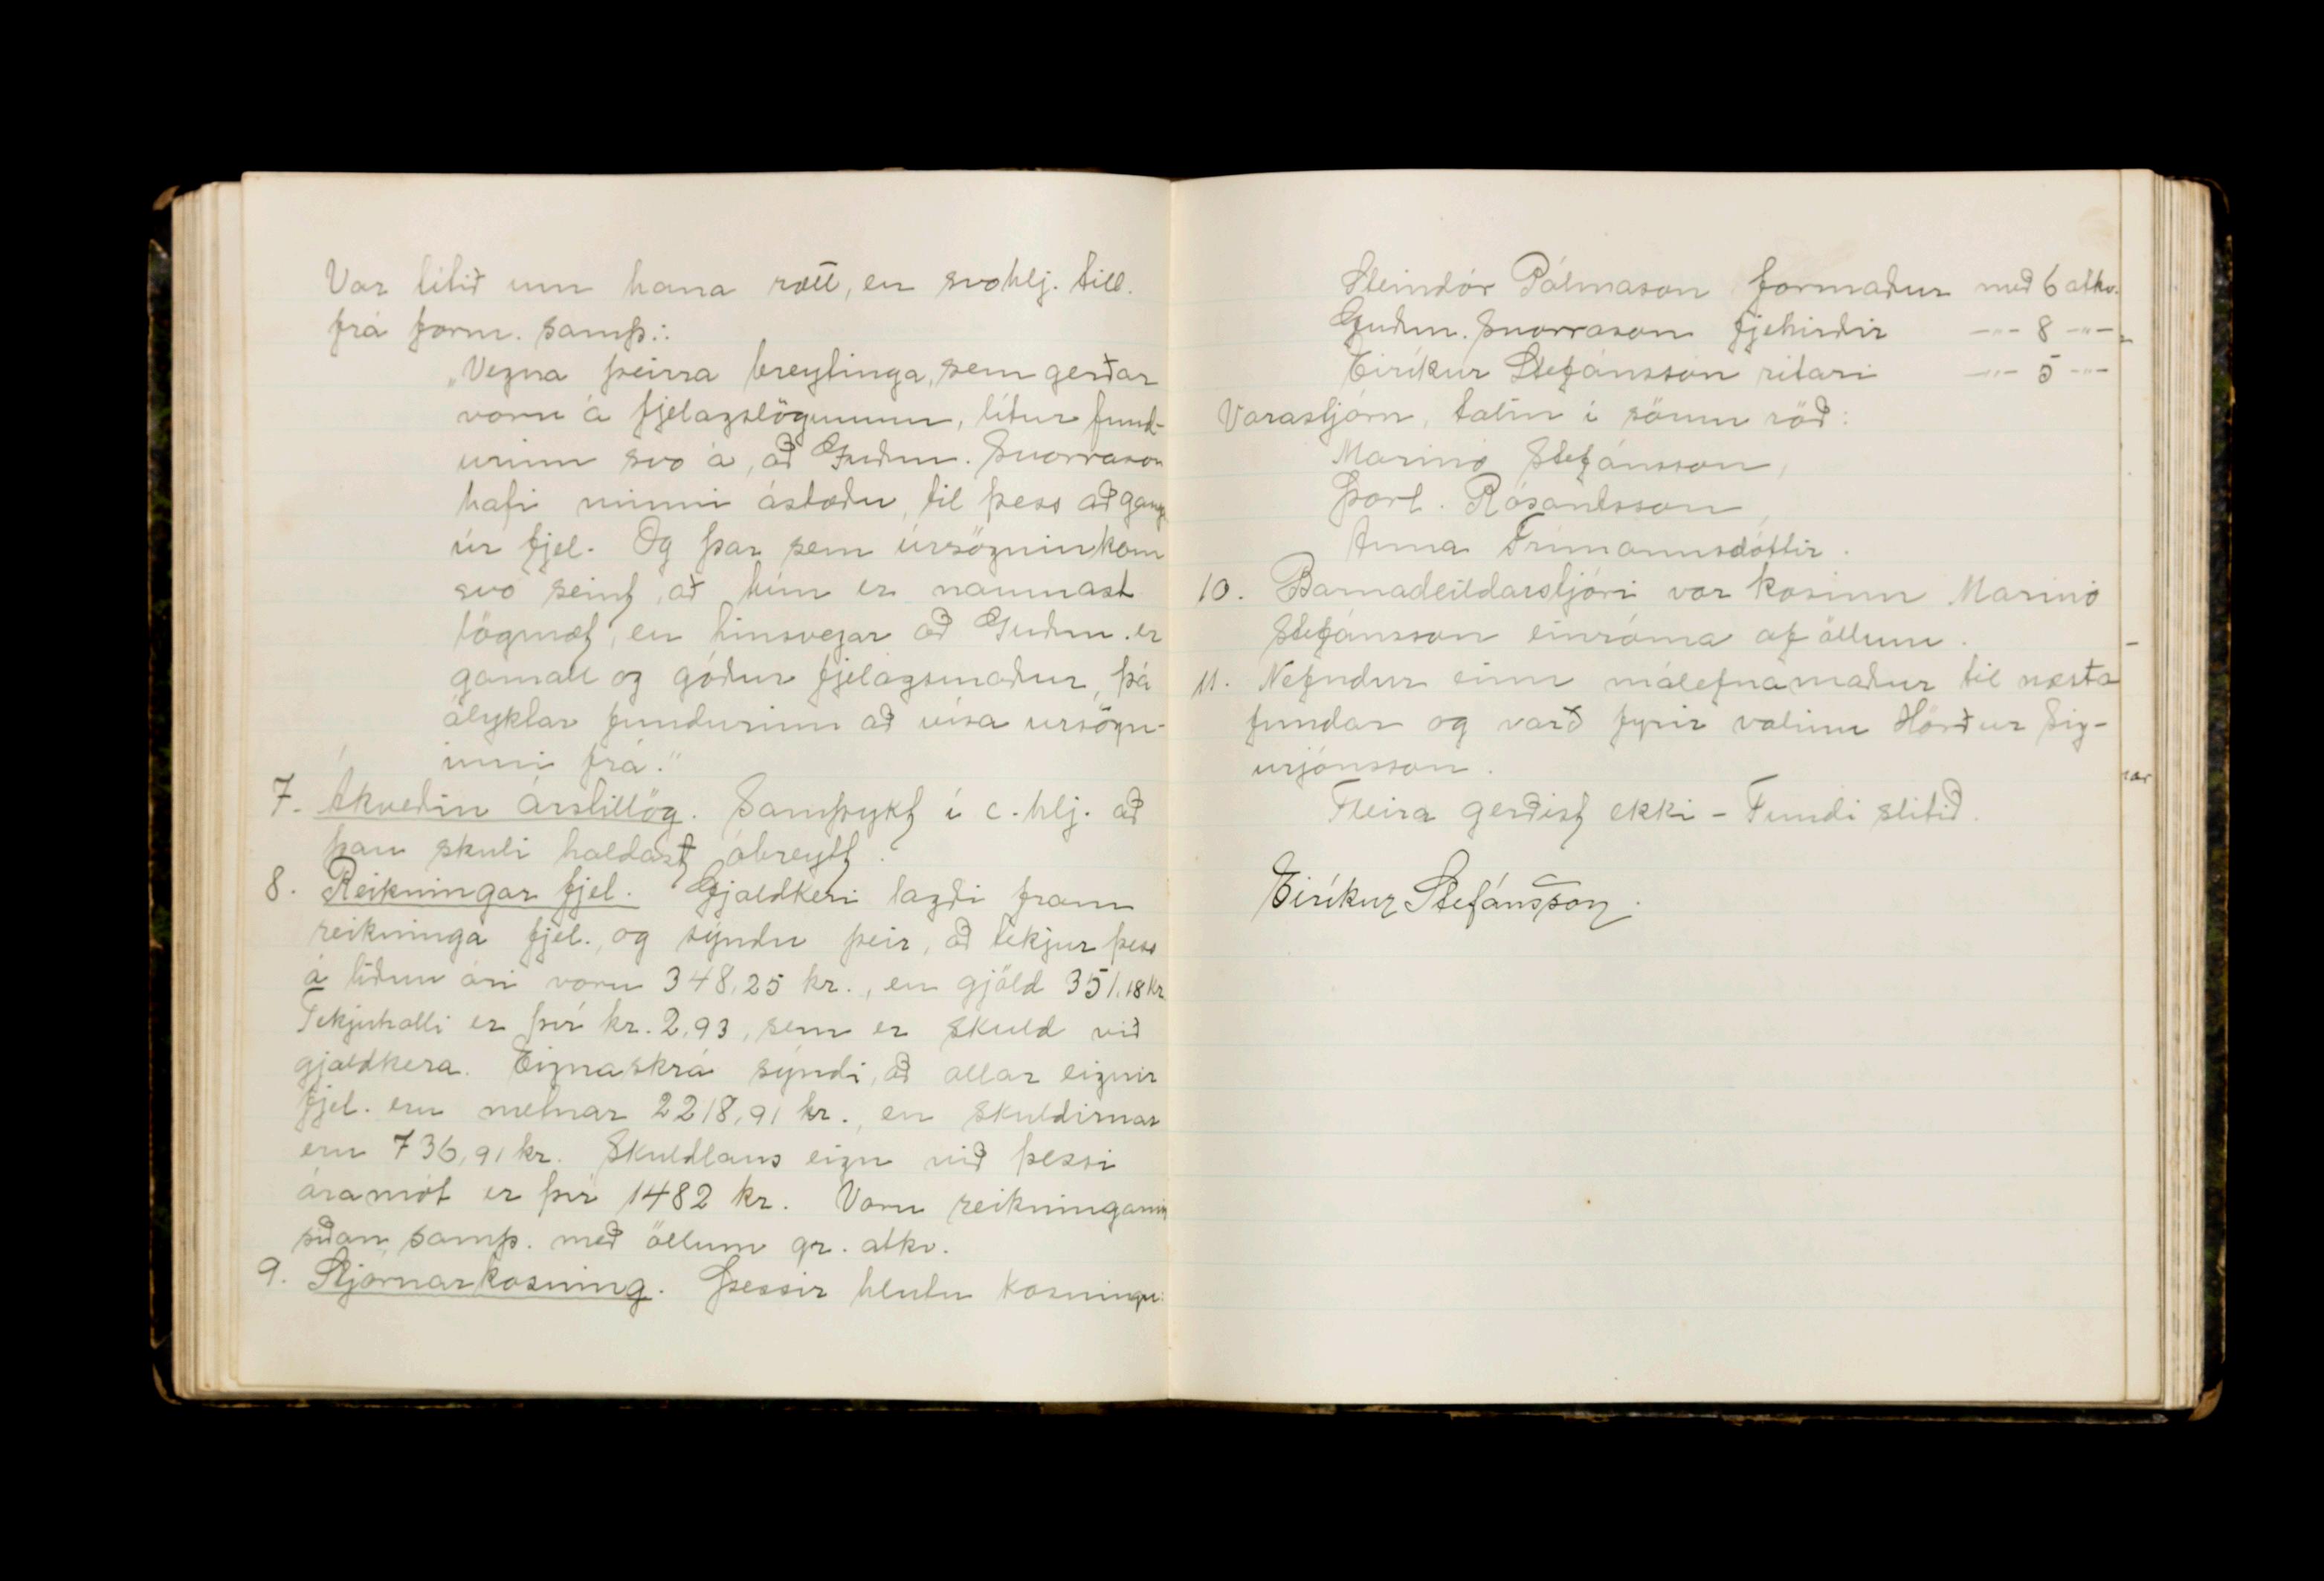 Var lítið um hana rætt, en svohlj. till.
frá form. samþ.:
„Vegna þeirra breytinga, sem gerðar
voru á fjelagslögunum, lítur fund-
urinn svo á, að Guðm. Snorrason
hafi minni ástæðu, til þess að ganga
úr fjel. Og þar sem úrsögnin kom
svo seint, að hún er naumast
lögmæt, en hinsvegar að Guðm. er
gamall og góður fjelagsmaður, þá
ályktar fundurinn að vísa úrsögn-
inni frá."
7. Ákveðin árstillög. Samþykt í e. hlj. að
þau skuli haldast óbreytt.
8. Reikningar fjel. Gjaldkeri lagði fram
reikninga fjel., og sýndu þeir, að tekjur þess
á liðnu ári voru 348,25 kr., en gjöld 351,18 kr
Tekjuhalli er því kr. 2,93, sem er skuld við
gjaldkera. Eignaskrá sýndi, að allar eignir
fjel. eru metnar 2218,91 kr., en skuldirnar
eru 736,91 kr. Skuldlaus eign við þessi
áramót er því 1482 kr. Voru reikningarnir
síðan samþ. með öllum gr. atkv.
9. Stjórnarkosning. Þessir hlutu kosningu:
Steindór Pálmason formaður með 6 atkv.
Guðm. Snorrason fjehirðir —"— 8 —"—
Eiríkur Stefánsson ritari —"— 5 —"—
Varastjórn, talin í sömu röð:
Marinó Stefánsson,
Þorl. Rósantsson,
Anna Frímannsdóttir.
10. Barnadeildarstjóri var kosinn Marinó
Stefánsson einróma af öllum.
11. Nefndur einn málefnamaður til næsta
fundar og varð fyrir valinu Hörður Sig-
urjónsson.
Fleira gerðist ekki – Fundi slitið.
Eiríkur Stefánsson.